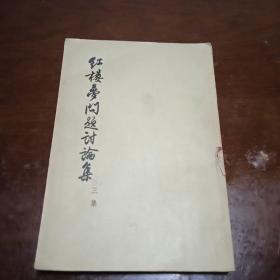 红楼梦问题讨论集
三集